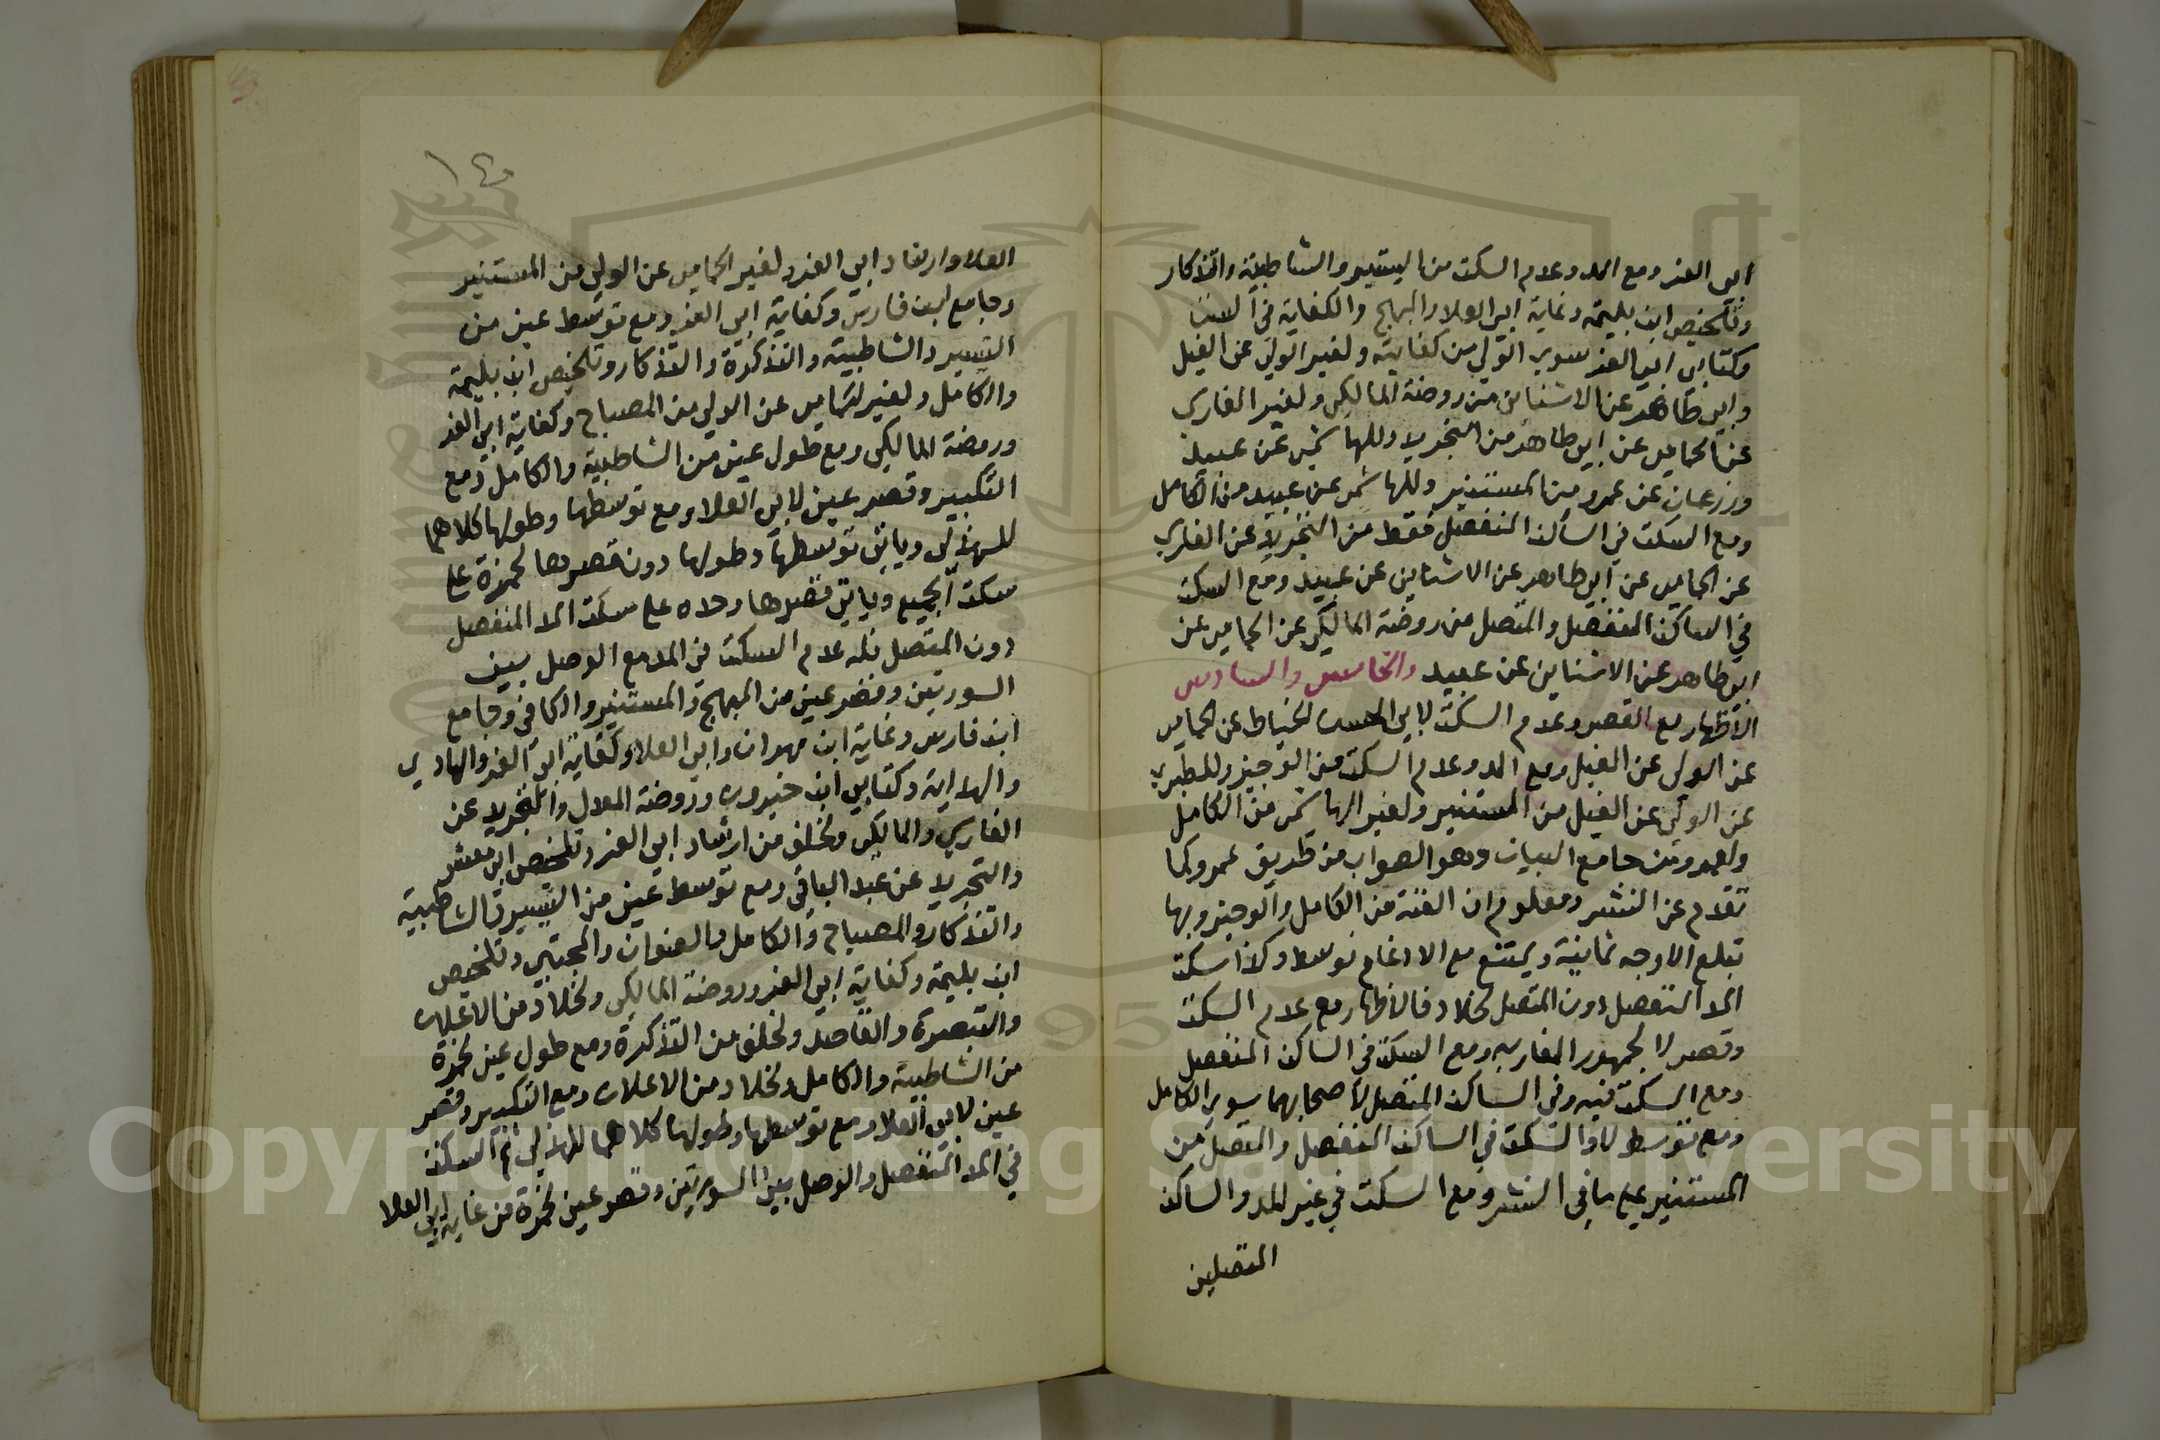 ابى العز ومع المد وعدم السكت من التيسير والشاطبية والتذكار
وتلخيص ابن بليمة وغاية ابى العلا والمبهج والكفاية فى الست
وكتابى ابى العز سوى الولى من كفايته ولغير الولى عن الفيل
وابى طاهر عن الاشنانى من روضة المالكى ولغير الفارسى
عن الحمامى عن ابى طاهر من التجريد وللهاشمى عن عبيد
وزرعان عن عمرو من المستنير وللهاشمى عن عبيد من الكامل
ومع السكت فى الساكن المنفصل فقط من التجريد عن الفارسى
عن الحمامى عن ابى طاهر عن الاشنانى عن عبيد ومع السكت
فى الساكن المنفصل والمتصل من روضة المالكى عن الحمامى عن
ابى طاهر عن الاشنانى عن عبيد والخامس والسادس
الاظهار مع القصر وعدم السكت لابى الحسن الخياط عن الحمامى
عن الولى عن الفيل ومع المد وعدم السكت من الوجيز وللطبرى
عن الولى عن الفيل من المستنير ولغير الهاشمى من الكامل
ولعمرو من جامع البيان وهو الصواب من طريق عمرو كما
تقدم عن النشر ومعلوم ان الغنة من الكامل والوجيز وبها
تبلغ الاوجه ثمانية ويمتنع مع الادغام توسط وكذا سكت
المد المنفصل دون المتصل لخلاد فالاظهار مع عدم السكت
وقصر لا لجمهور المغاربه ومع السكت فى الساكن المنفصل
ومع السكت فيه وفى الساكن المتصل لاصحابهما سوى الكامل
ومع توسط لا والسكت فى الساكن المنفصل والمتصل من
المستنير على ما فى النشر ومع السكت فى غير المد والساكن
المتصلين
١٤٠
العلا وارشاد ابى العز ولغير الحمامى عن الولى من المستنير
وجامع ابن فارس وكفاية ابى العز ومع توسط عين من
التيسير والشاطبية والتذكرة والتذكار وتلخيص ابن بليمة
والكامل ولغير الحمامى عن الولى من المصباح وكفاية ابى العز
وروضة المالكى ومع طول عين من الشاطبية والكامل ومع
التكبير وقصر عين لابى العلا ومع توسطها وطولها كلاهما
للهذلى وياتى توسطها وطولها دون قصرها لحمزة على
سكت الجميع وياتى قصرها وحده على سكت المد المنفصل
دون المتصل فله عدم السكت فى المد مع الوصل بين
السورتين وقصر عين من المبهج والمستنير والكافى وجامع
ابن فارس وغاية ابن مهران وابى العلا وكفاية ابى العز والهادى
والهداية وكتابى ابن خيرون وروضة المعدل والتجريد عن
الفارسى والمالكى ولخلف من ارشاد ابى العز وتلخيص ابى معشر
والتجريد عن عبد الباقى ومع توسط عين من التيسير والشاطبية
والتذكار والمصباح والكامل والعنوان والمجتبى وتلخيص
ابن بليمة وكفاية ابى العز وروضة المالكى ولخلاد من الاعلان
والتبصرة والقاصد ولخلف من التذكرة ومع طول عين لحمزة
من الشاطبية والكامل ولخلاد من الاعلان ومع التكبير وقصر
عين لابى العلا ومع توسطها وطولها كلاهما للهذلى ثم السكت
فى المد المنفصل والوصل بين السورتين وقصر عين لحمزة من غاية ابى العلا